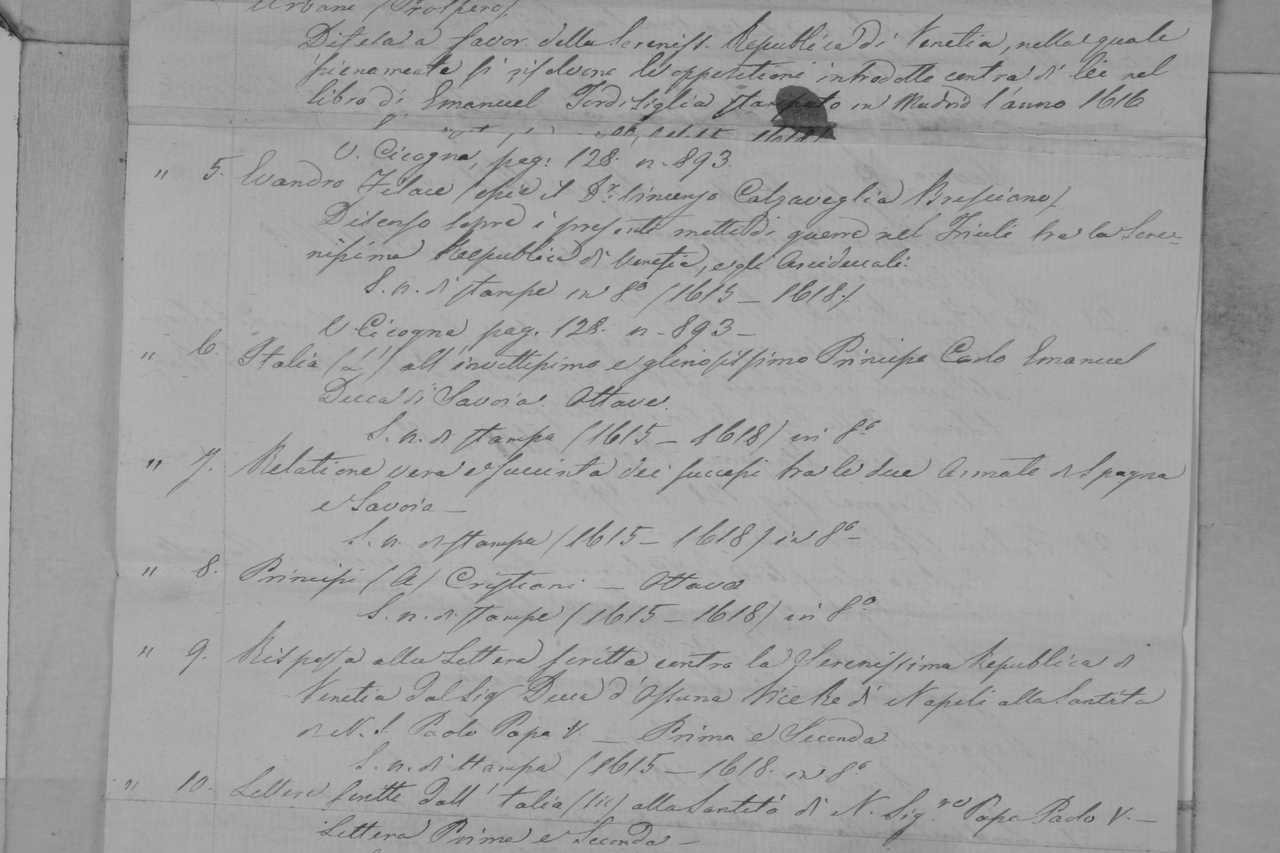 Urbane (Prospero)
Difesa a favor della Sereniss. Republica di Venetia, nella quale
pienamente si risolvono le oppositioni introdotte contra di lei nel
libro di Emanuel Tordisiglia stampato in Madrid l'anno 1616
V. Cicogna, pag. 128. n. 893
" 5. Evandro Filace (cioè il Dr. Vincenzo Calzaveglia Bresciano)
Discorso sopra i presenti motti di guerra nel Friuli tra la Sere-
nissima Republica di Venetia, e gli Arciducali.
S. n. di stampa in 8o (1615 – 1618)
V Cicogna pag. 128. n. 893 –
" 6. Italia (L') all'invittissimo e gloriosissimo Principe Carlo Emanuel
Duca di Savoia Ottave.
S. n. di stampa (1615 – 1618) in 8o
" 7. Relatione vera e succinta dei successi tra le due Armate di Spagna
e Savoia –
S. n. di stampa (1615 – 1618) in 8o –
" 8. Principi (A) Cristiani – Ottave
S. n. di stampa (1615 – 1618) in 8o
" 9. Risposta alla Lettera scritta contro la Serenissima Republica di
Venetia dal Sigr Duca d'Ossuna Vice Re di Napoli alla Santità
di N. S. Paolo Papa V – Prima e Seconda
S. n. di stampa (1615 – 1618. in 8o
" 10. Lettere scritte dall'talia (sic) alla Santità di N. Sig.re Papa Paolo V. –
Lettera Prima e Seconda –